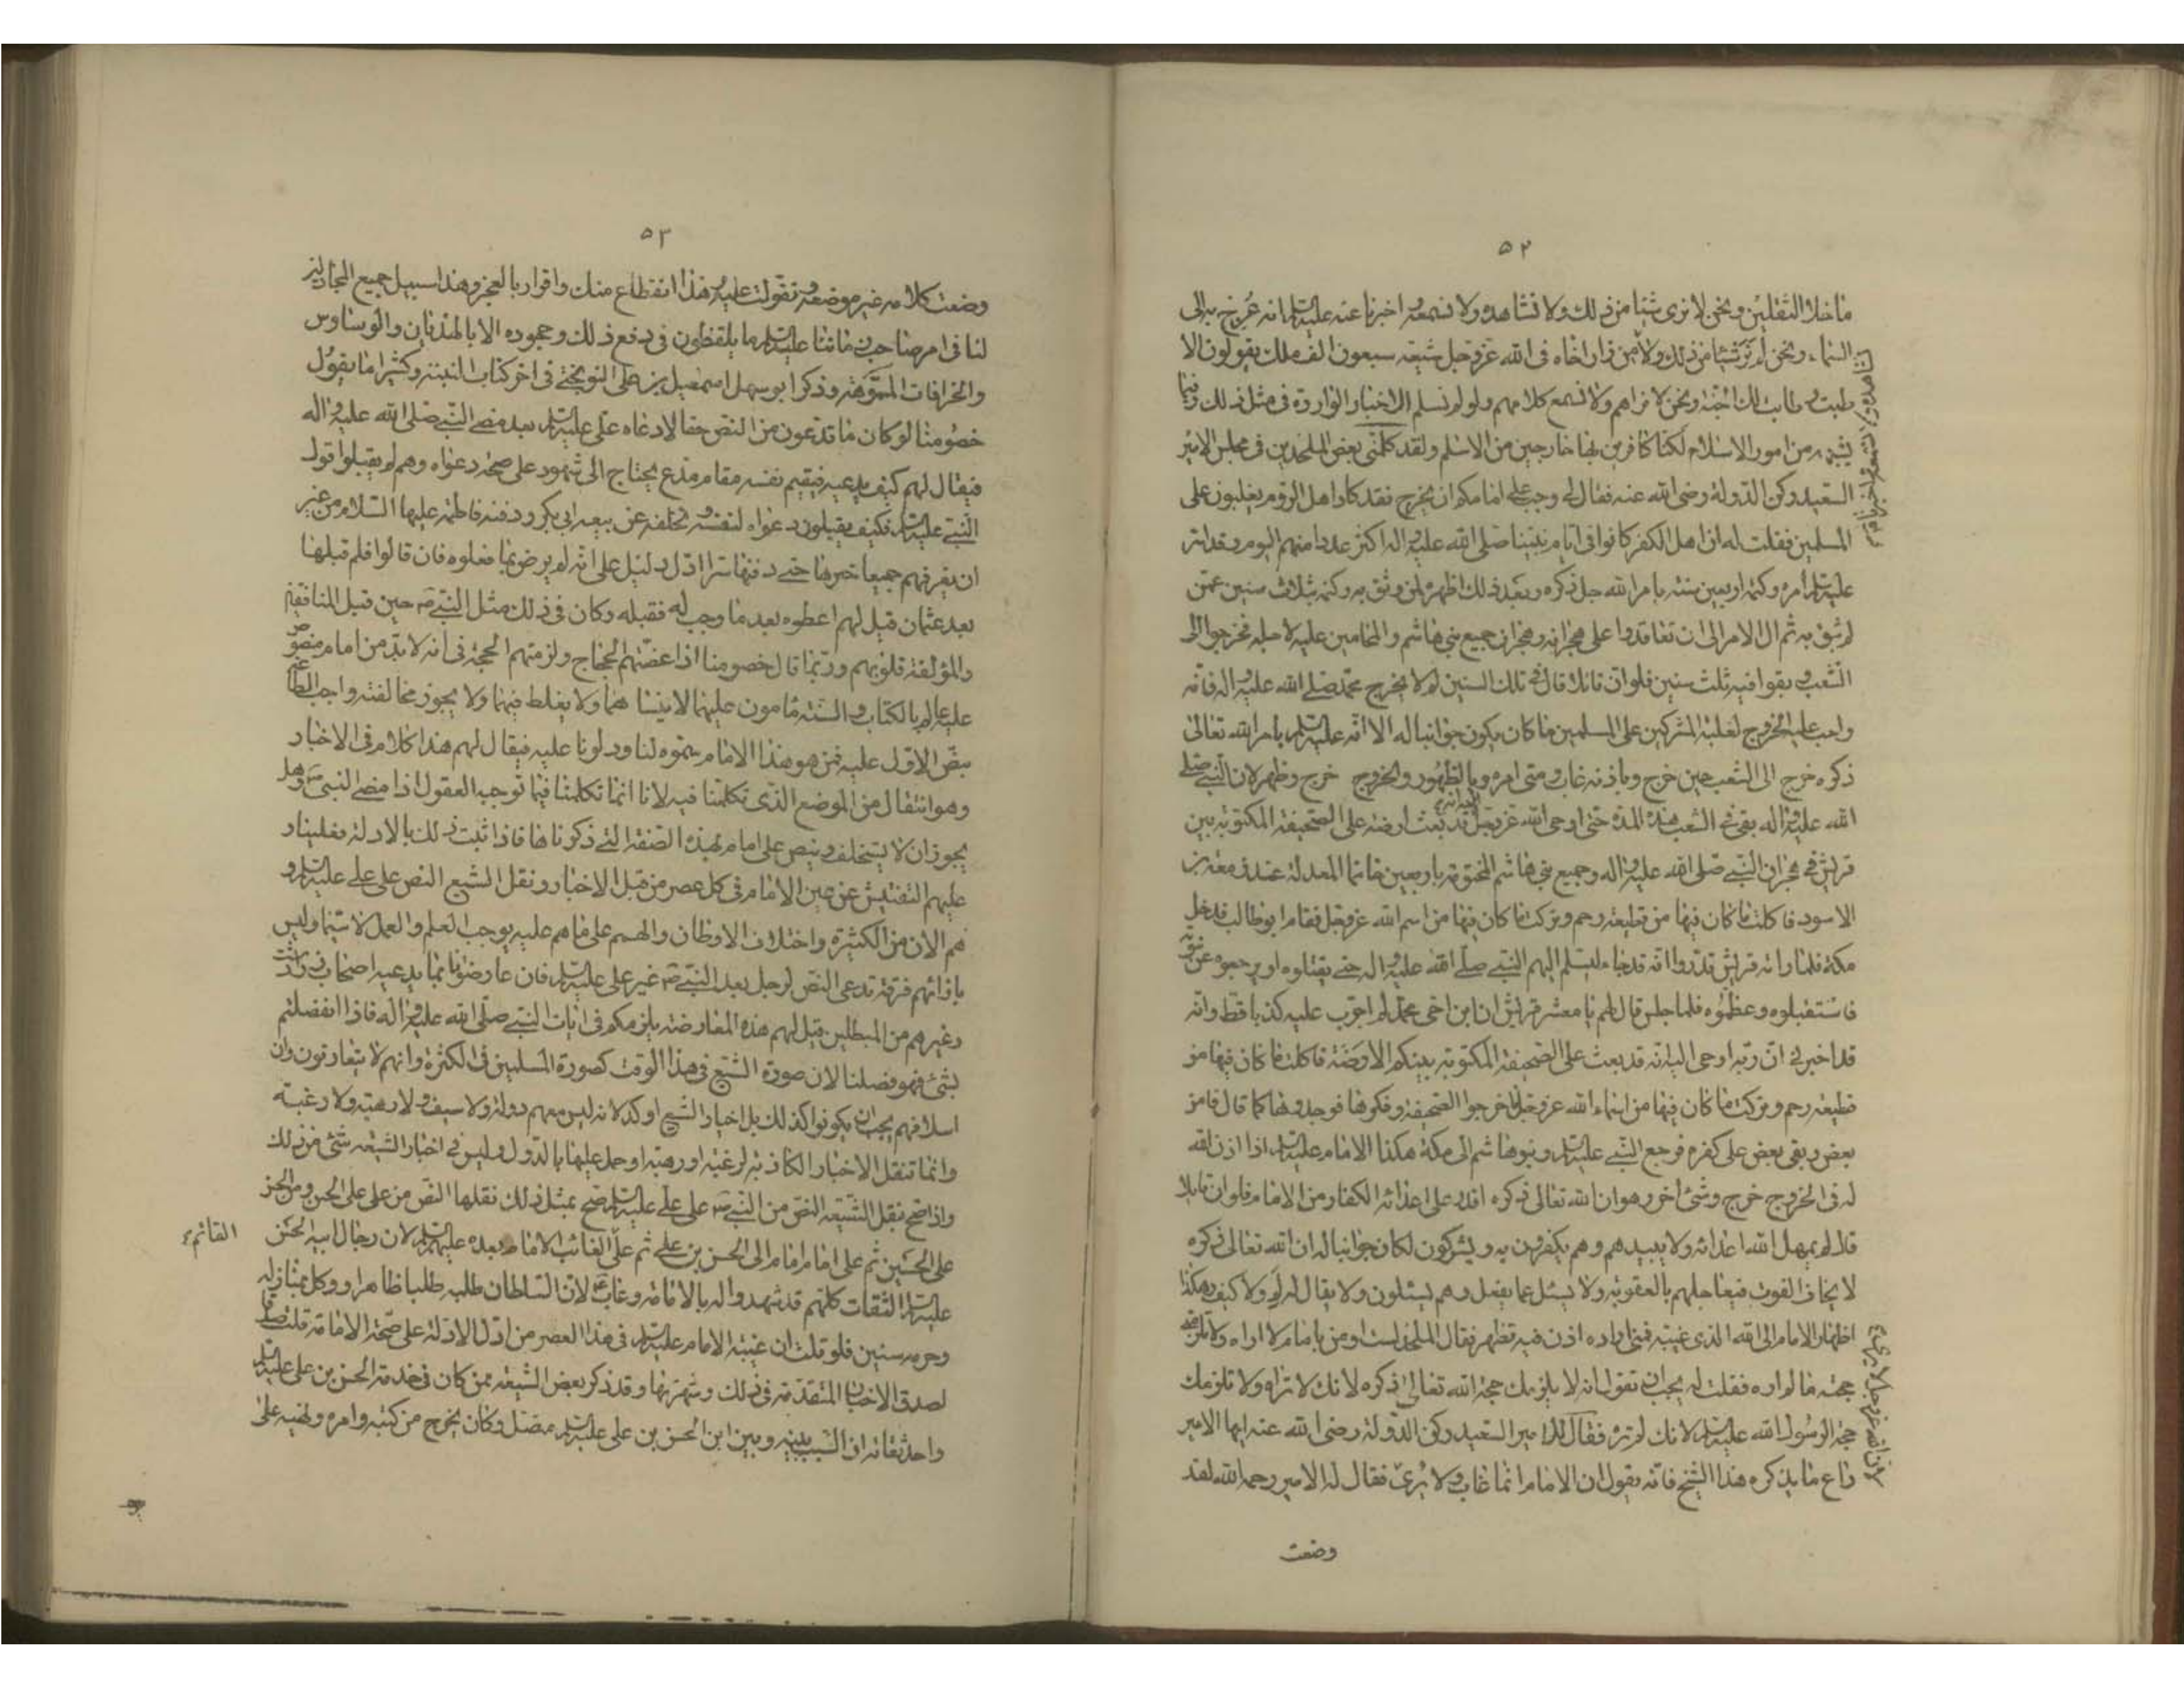 ٥٢
ما خلا الثقلين ونحن لا نرى شيئا من ذلك ولا نشاهده ولا نسمعه واخبرنا عنه عليه السلام انه عرج به الى
السماء ونحن لم نر شيئا من ذلك ولا من زار اخاه فى الله عز وجل شيعه سبعون الف ملك يقولون الا
طبت وطابت لك الجنة ونحن لا نراهم ولا نسمع كلامهم ولو لم نسلم الاخبار الواردة فى مثل ذلك وفيما
يشبهه من امور الاسلام لكنا كافرين بها خارجين من الاسلام ولقد كلمنى بعض الملحدين فى مجلس الامير
السعيد ركن الدولة رضى الله عنه فقال لى وجب على امامكم ان يخرج فقد كاد اهل الروم يغلبون على
المسلمين فقلت له ان اهل الكفر كانوا فى ايام نبينا صلى الله عليه واله اكثر عددا منهم اليوم وقد اسر
عليه السلام امره وكتمه اربعين سنة بامر الله جل ذكره وبعد ذلك اظهره لمن وثق به وكتمه ثلاث سنين عمن
لم يثق به ثم ال الامر الى ان تعاقدوا على هجرانه وهجران جميع بنى هاشم والمحامين عليه لاجله فخرجوا الى
الشعب وبقوا فيه ثلث سنين فلو ان قائلا قال فى تلك السنين لم لا يخرج محمد صلى الله عليه واله فانه
واجب عليه الخروج لغلبة المشركين على المسلمين ما كان يكون جوابنا له الا انه عليه السلام بامر الله تعالى
ذكره خرج الى الشعب حين خرج وباذنه غاب ومتى امره بالظهور والخروج خرج وظهر لان النبى صلى
الله عليه واله بقى فى الشعب هذه المدة حتى اوحى الله عز وجل اليه انه قد بعث ارضة على الصحيفة المكتوبة بين
قريش فى هجران النبى صلى الله عليه واله وجميع بنى هاشم المختومة باربعين خاتما المعدلة عند زمعة بن
الاسود فاكلت ما كان فيها من قطيعة رحم وتركت ما كان فيها من اسم الله عز وجل فقام ابو طالب فدخل
مكة فلما راته قريش قدروا انه قد جاء ليسلم اليهم النبى صلى الله عليه واله حتى يقتلوه او يرجعوه عن نبوته
فاستقبلوه وعظموه فلما جلس قال لهم يا معشر قريش ان ابن اخى محمد لم اجرب عليه كذبا قط وانه
قد اخبرنى ان ربه اوحى اليه انه قد بعث على الصحيفة المكتوبة بينكم الارضة فاكلت ما كان فيها من
قطيعة رحم وتركت ما كان فيها من اسماء الله عز وجل فاخرجوا الصحيفة وفكوها فوجدوها كما قال فامن
بعض وبقى بعض على كفره فرجع النبى عليه السلام وبنو هاشم الى مكة هكذا الامام عليه السلام اذا اذن الله
له فى الخروج خرج وشئ اخر وهو ان الله تعالى ذكره اقدر على اعدائه الكفار من الامام فلو ان قائلا
قال لم يمهل الله اعدائه ولا يبيدهم وهم يكفرون به ويشركون لكان جوابنا له ان الله تعالى ذكره
لا يخاف الفوت فيعاجلهم بالعقوبة ولا يسئل عما يفعل وهم يسئلون ولا يقال له لم ولا كيف وهكذا
اظهار الامام الى الله الذى غيبه فمتى اراده اذن فيه فظهر فقال الملحد لست اومن بامام لا اراه ولا تلزمنى
حجته ما لم اره فقلت له يجب ان تقول انه لا يلزمك حجة الله تعالى ذكره لانك لا تراه ولا تلزمك
حجة الرسول الله عليه السلام لانك لم تره فقال للامير السعيد ركن الدولة رضى الله عنه ايها الامير
راع ما يذكره هذا الشيخ فانه يقول ان الامام انما غاب ولا يرى لان الله عز وجل لا يرى فقال له الامير رحمه الله لقد
وضعت
٥٣
وضعت كلامه غير موضعه وتقولت عليه وهذا انقطاع منك واقرار بالعجز وهذا سبيل جميع المجادلين
لنا فى امر صاحب زماننا عليه السلام ما يلفظون فى دفع ذلك وجحوده الا بالهذيان والوساوس
والخرافات المموهة وذكر ابو سهل اسمعيل بن على النوبختى فى اخر كتاب التنبيه وكثيرا ما يقول
خصومنا لو كان ما تدعون من النص حقا لادعاه على عليه السلام بعد مضى النبى صلى الله عليه واله
فيقال لهم كيف يدعيه فيقيم نفسه مقام مدع يحتاج الى شهود على صحة دعواه وهم لم يقبلوا قول
النبى عليه السلام فكيف يقبلون دعواه لنفسه وتخلفه عن بيعة ابى بكر ودفنه فاطمة عليها السلام من غير
ان يعرفهم جميعا خبرها حتى دفنها سرا ادل دليل على انه لم يرض بما فعلوه فان قالوا فلم قبلها
بعد عثمان قيل لهم اعطوه بعد ما وجب له فقبله وكان فى ذلك مثل النبى ص حين قبل المنافقين
والمؤلفة قلوبهم وربما قال خصومنا اذا عضهم الحجاج ولزمتهم الحجة فى انه لا بد من امام منصوص
عليه عالم بالكتاب والسنة مامون عليهما لا ينساهما ولا يغلط فيهما ولا يجوز مخالفته واجب الطاعة
بنص الاول عليه فمن هو هذا الامام سموه لنا ودلونا عليه فيقال لهم هذا كلام فى الاخبار
وهو انتقال من الموضع الذى تكلمنا فيه لانا انما تكلمنا فيما توجبه العقول اذا مضى النبى ص وهل
يجوز ان لا يستخلف وينص على امام بهذه الصفة التى ذكرناها فاذا ثبت ذلك بالادلة فعلينا و
عليهم التفتيش عن عين الامام فى كل عصر من قبل الاخبار ونقل الشيع النص على على عليه السلام و
هم الان من الكثرة واختلاف الاوطان والهمم على ما هم عليه يوجب العلم والعمل لا سيما وليس
بازائهم فرقة تدعى النص لرجل بعد النبى ص غير على عليه السلام فان عارضونا بما يدعيه اصحاب زرادشت
وغيرهم من المبطلين قيل لهم هذه المعارضة يلزمكم فى ايات النبى صلى الله عليه واله فاذا انفصلتم
بشئ فهو فصلنا لان صورة الشيع فى هذا الوقت كصورة المسلمين فى الكثرة وانهم لا يتعارفون وان
اسلافهم يجب ان يكونوا كذلك بل اخبار الشيع اوكد لانه ليس معهم دولة ولا سيف ولا رهبة ولا رغبة
وانما تنقل الاخبار الكاذبة لرغبة او رهبة او حمل عليها بالدول وليس فى اخبار الشيعة شئ من ذلك
واذا صح نقل الشيعة النص من النبى ص على على عليه السلام صح بمثل ذلك نقلها النص من على على الحسن ومن الحسن
على الحسين ثم على امام امام الى الحسن بن على ثم على الغائب الامام بعده عليهم السلام لان رجال ابيه الحسن
القائم ع
عليه السلام الثقات كلهم قد شهدوا له بالامامة وغاب ع لان السلطان طلبه طلبا ظاهرا ووكل بمنازله
وحرمه سنين فلو قلت ان غيبة الامام عليه السلام فى هذا العصر من ادل الادلة على صحة الامامة قلت صدقا
لصدق الاخبار المتقدمة فى ذلك وشهرتها وقد ذكر بعض الشيعة ممن كان فى خدمة الحسن بن على عليه السلام
واحد ثقاته ان السبب بينه وبين ابن الحسن بن على عليه السلام متصل وكان يخرج من كتبه وامره ونهيه على